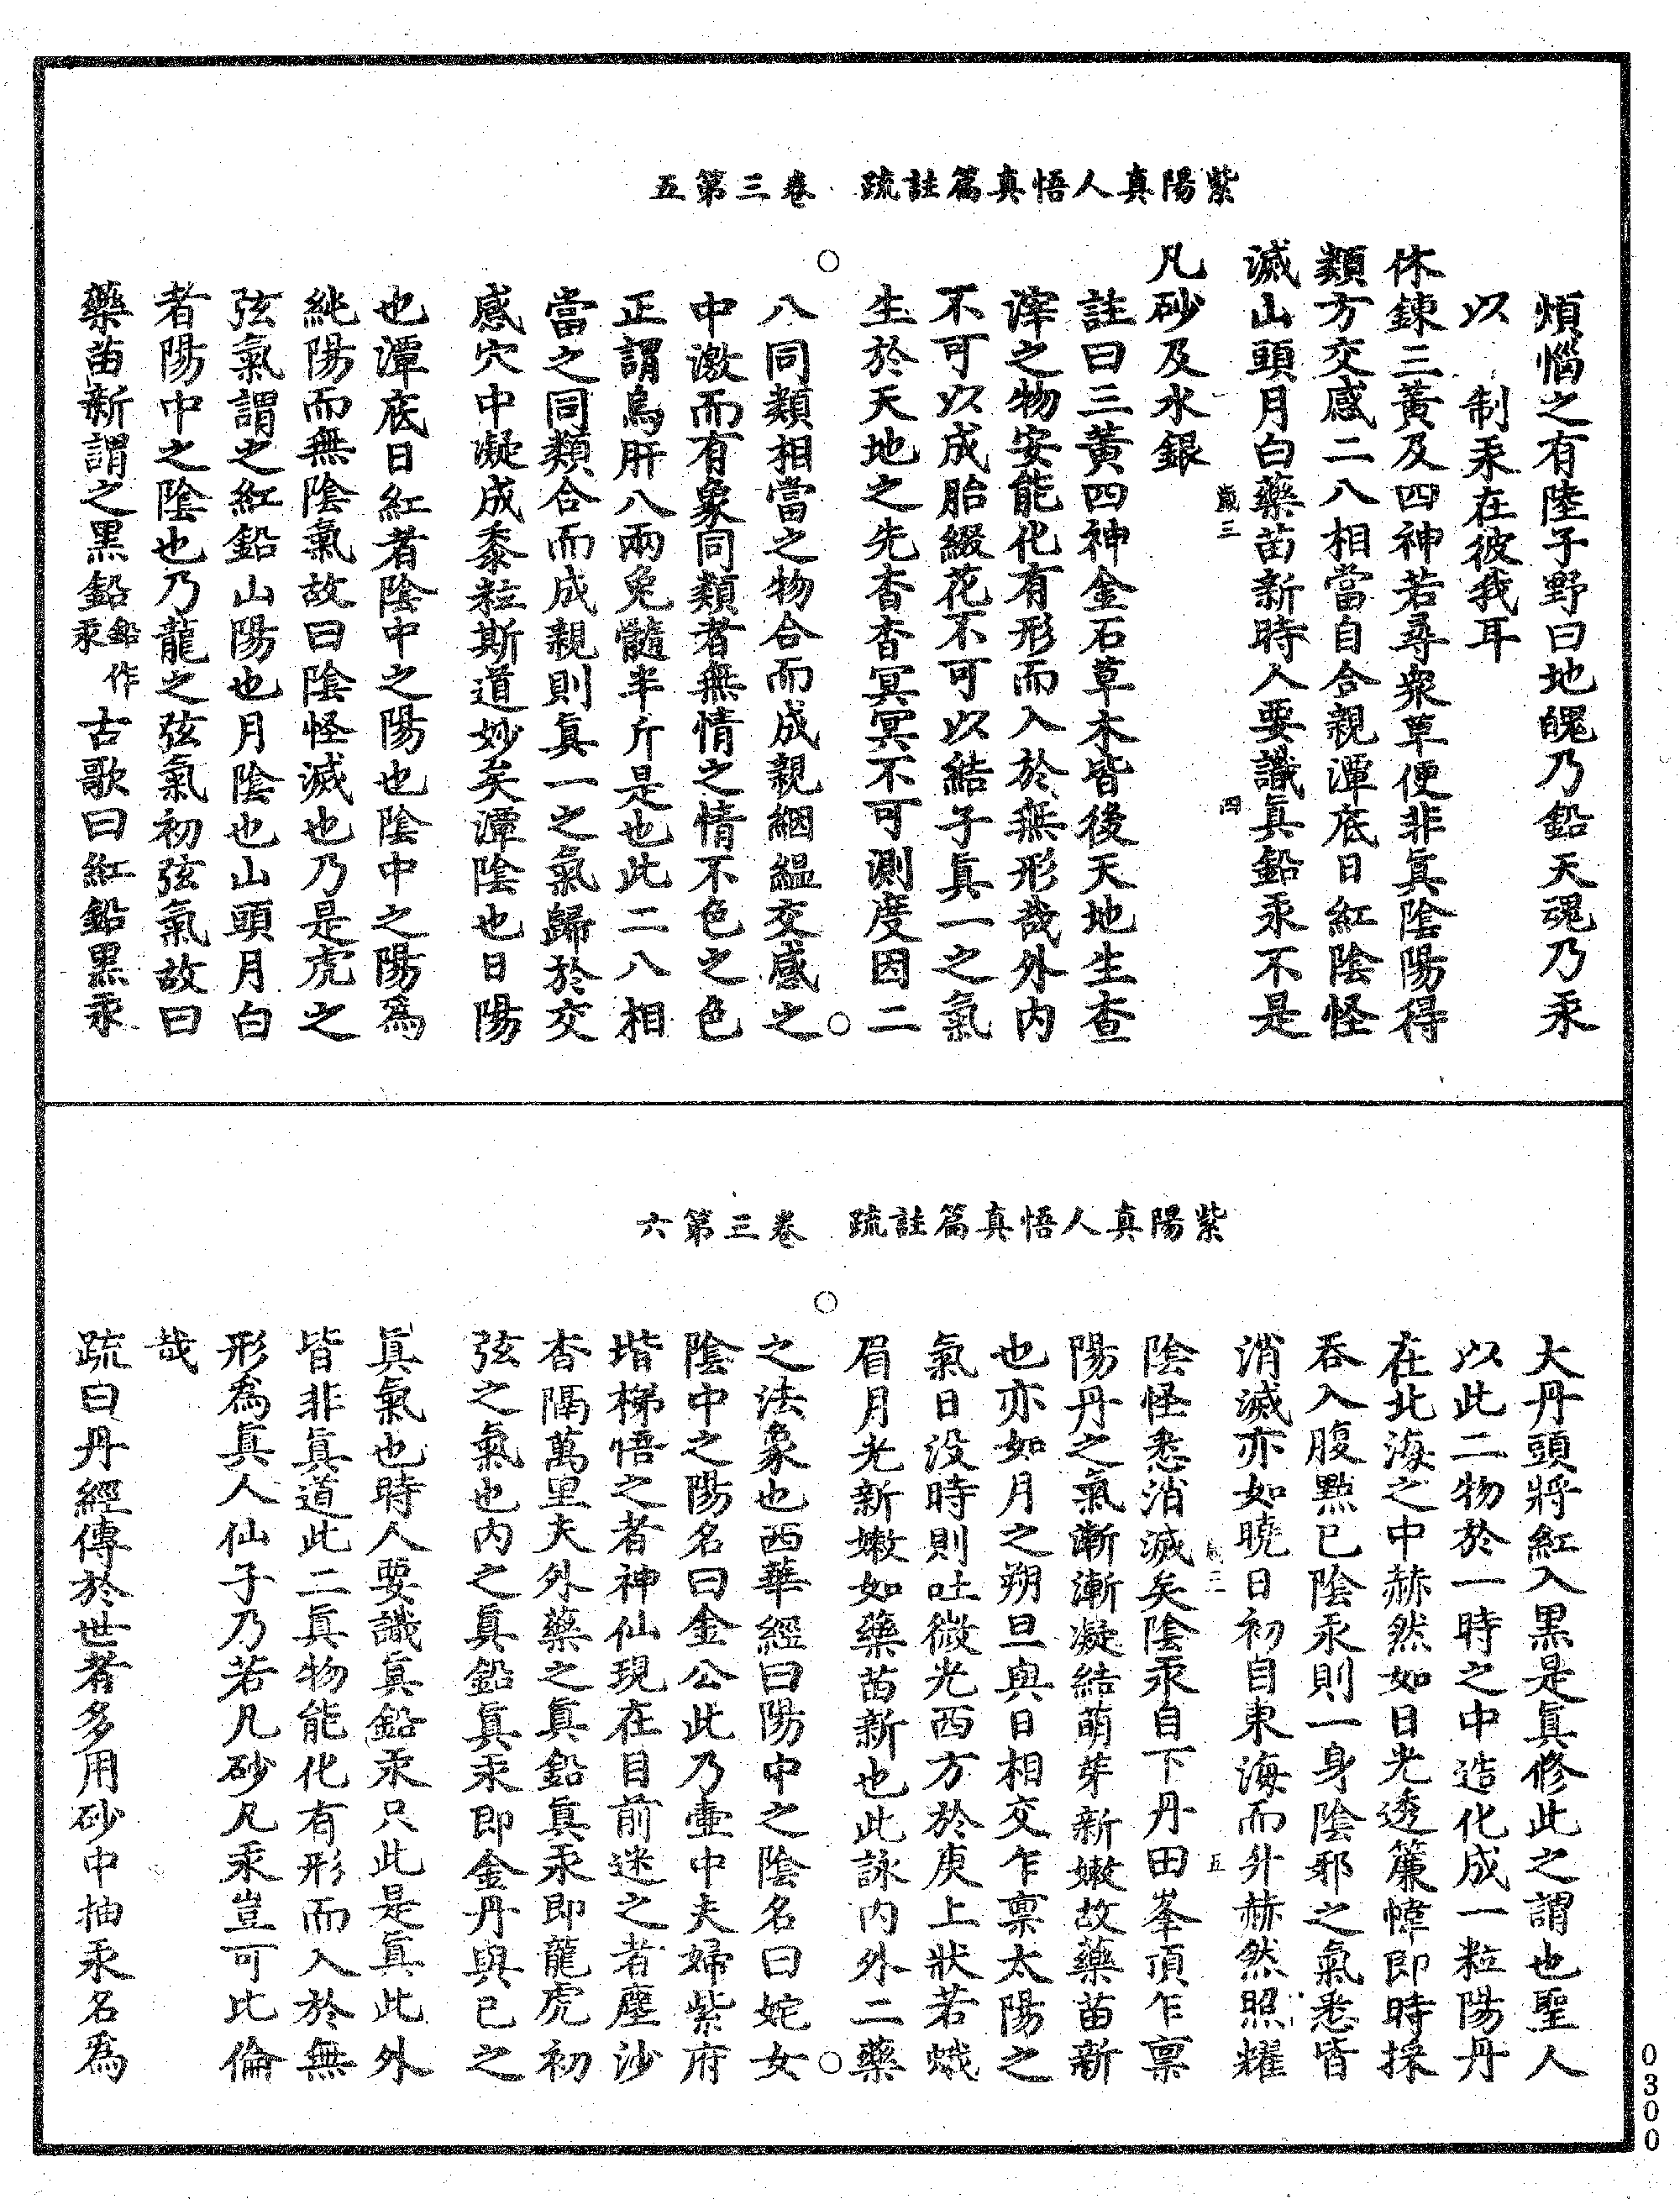 紫陽真人悟真篇註疏　卷三第五
煩惱之有陸子野曰地魄乃鉛天魂乃汞
以　制汞在彼我耳
休鍊三黃及四神若尋衆草便非眞陰陽得
類方交感二八相當自合親潭底日紅陰怪
滅山頭月白藥苗新時人要識眞鉛汞不是
歲三　四
凡砂及水銀
註曰三黃四神金石草木皆後天地生查
滓之物安能化有形而入於無形哉外内
不可以成胎綴花不可以結子眞一之氣
生於天地之先杳杳冥冥不可測度因二
八同類相當之物合而成親絪縕交感之
中激而有象同類者無情之情不色之色
正謂烏肝八兩兔髓半斤是也此二八相
當之同類合而成親則眞一之氣歸於交
感穴中凝成黍粒斯道妙矣潭陰也日陽
也潭底日紅者陰中之陽也陰中之陽爲
純陽而無陰氣故曰陰怪滅也乃是虎之
弦氣謂之紅鉛山陽也月陰也山頭月白
者陽中之陰也乃龍之弦氣初弦氣故曰
藥苗新謂之黑鉛鉛作汞古歌曰紅鉛黑汞
紫陽真人悟真篇註疏　卷三第六
大丹頭將紅入黑是眞修此之謂也聖人
以此二物於一時之中造化成一粒陽丹
在北海之中赫然如日光透簾幃即時採
吞入腹點已陰汞則一身陰邪之氣悉皆
消滅亦如曉日初自東海而升赫然照耀
五
陰怪悉消滅矣陰汞自下丹田峯頂乍禀
陽丹之氣漸漸凝結萌芽新嫩故藥苗新
也亦如月之朔旦與日相交乍禀太陽之
氣日没時則吐微光西方於庚上狀若蛾
眉月光新嫩如藥苗新也此詠内外二藥
之法象也西華經曰陽中之陰名曰姹女
陰中之陽名曰金公此乃壷中夫婦紫府
堦梯悟之者神仙現在目前迷之者塵沙
杳隔萬里夫外藥之眞鉛眞汞即龍虎初
弦之氣也内之眞鉛眞汞即金丹與已之
眞氣也時人要識眞鉛汞只此是眞此外
皆非眞道此二眞物能化有形而入於無
形爲眞人仙子乃若凡砂凡汞豈可比倫
哉
疏曰丹經傳於世者多用砂中抽汞名爲
0300